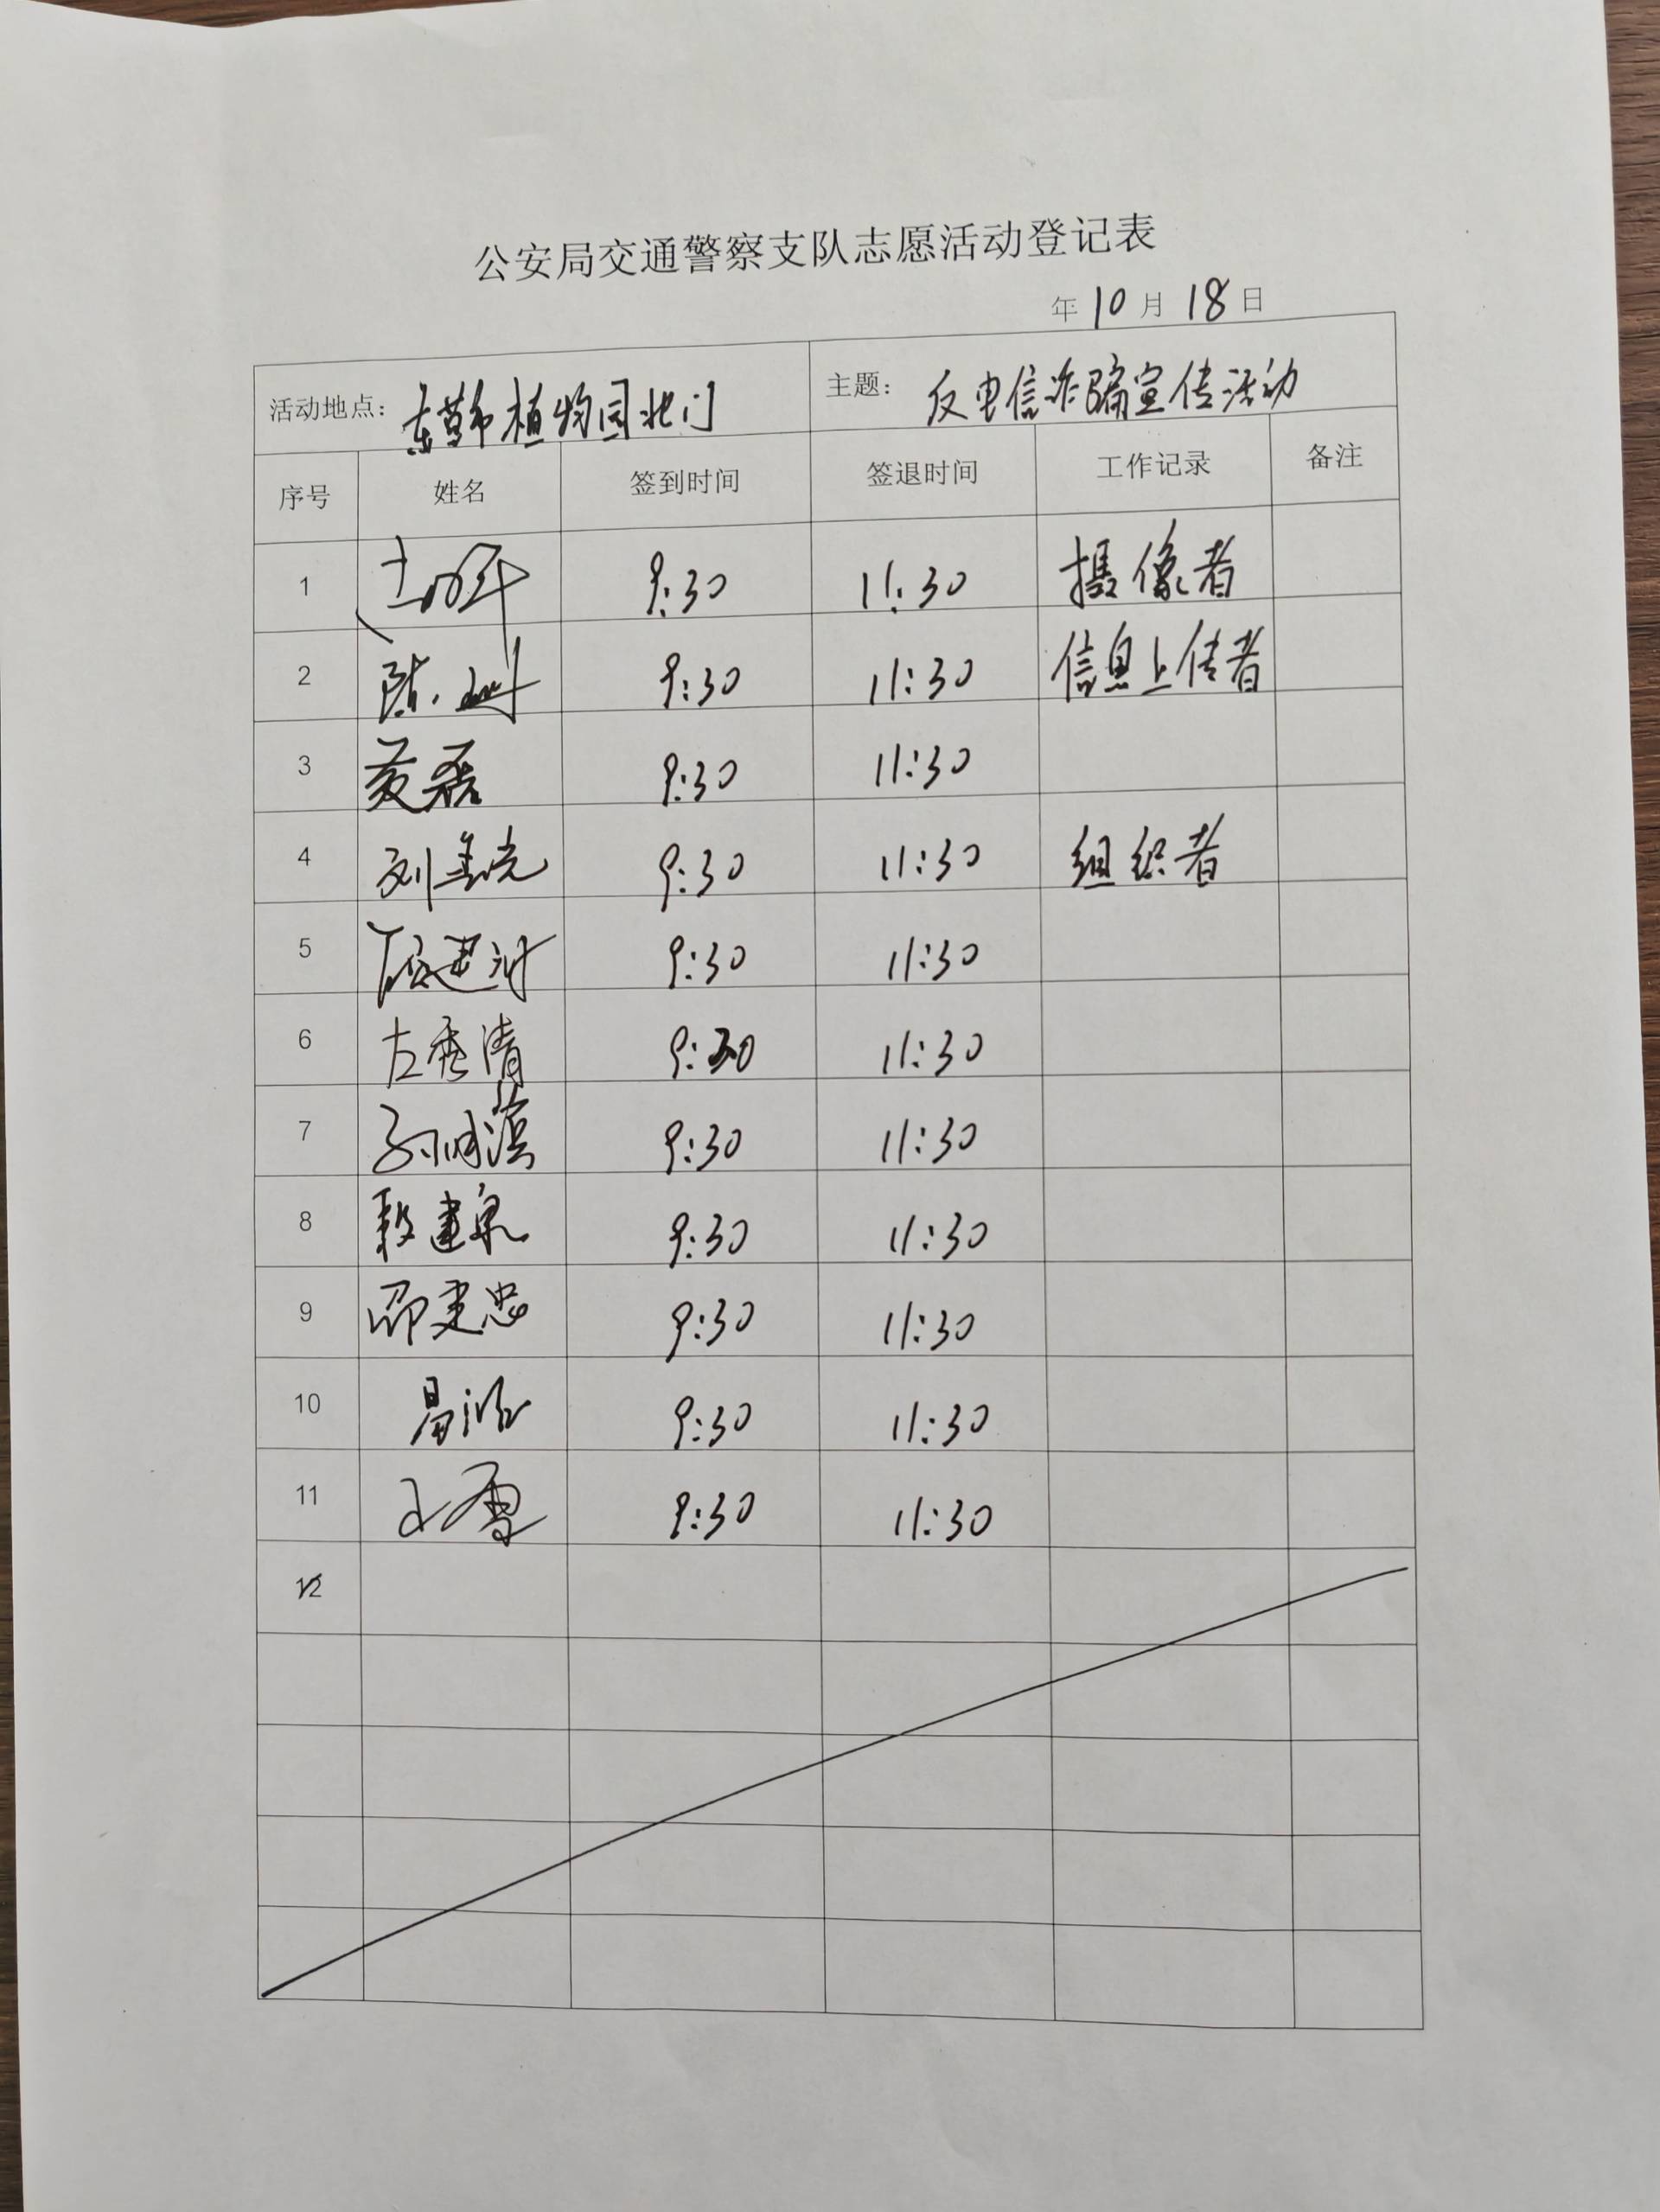 公安局交通警察支队志愿活动登记表
年 10 月 18 日
活动地点: 东莞市植物园北门 主题: 反电信诈骗宣传活动
序号 姓名 签到时间 签退时间 工作记录 备注
1 9:30 11:30 摄像者
2 陈 9:30 11:30 信息上传者
3 黄磊 9:30 11:30
4 刘 9:30 11:30 组织者
5 9:30 11:30
6 左秀清 9:30 11:30
7 孙 滨 9:30 11:30
8 建泉 9:30 11:30
9 邵建忠 9:30 11:30
10 易 9:30 11:30
11 王雪 9:30 11:30
12